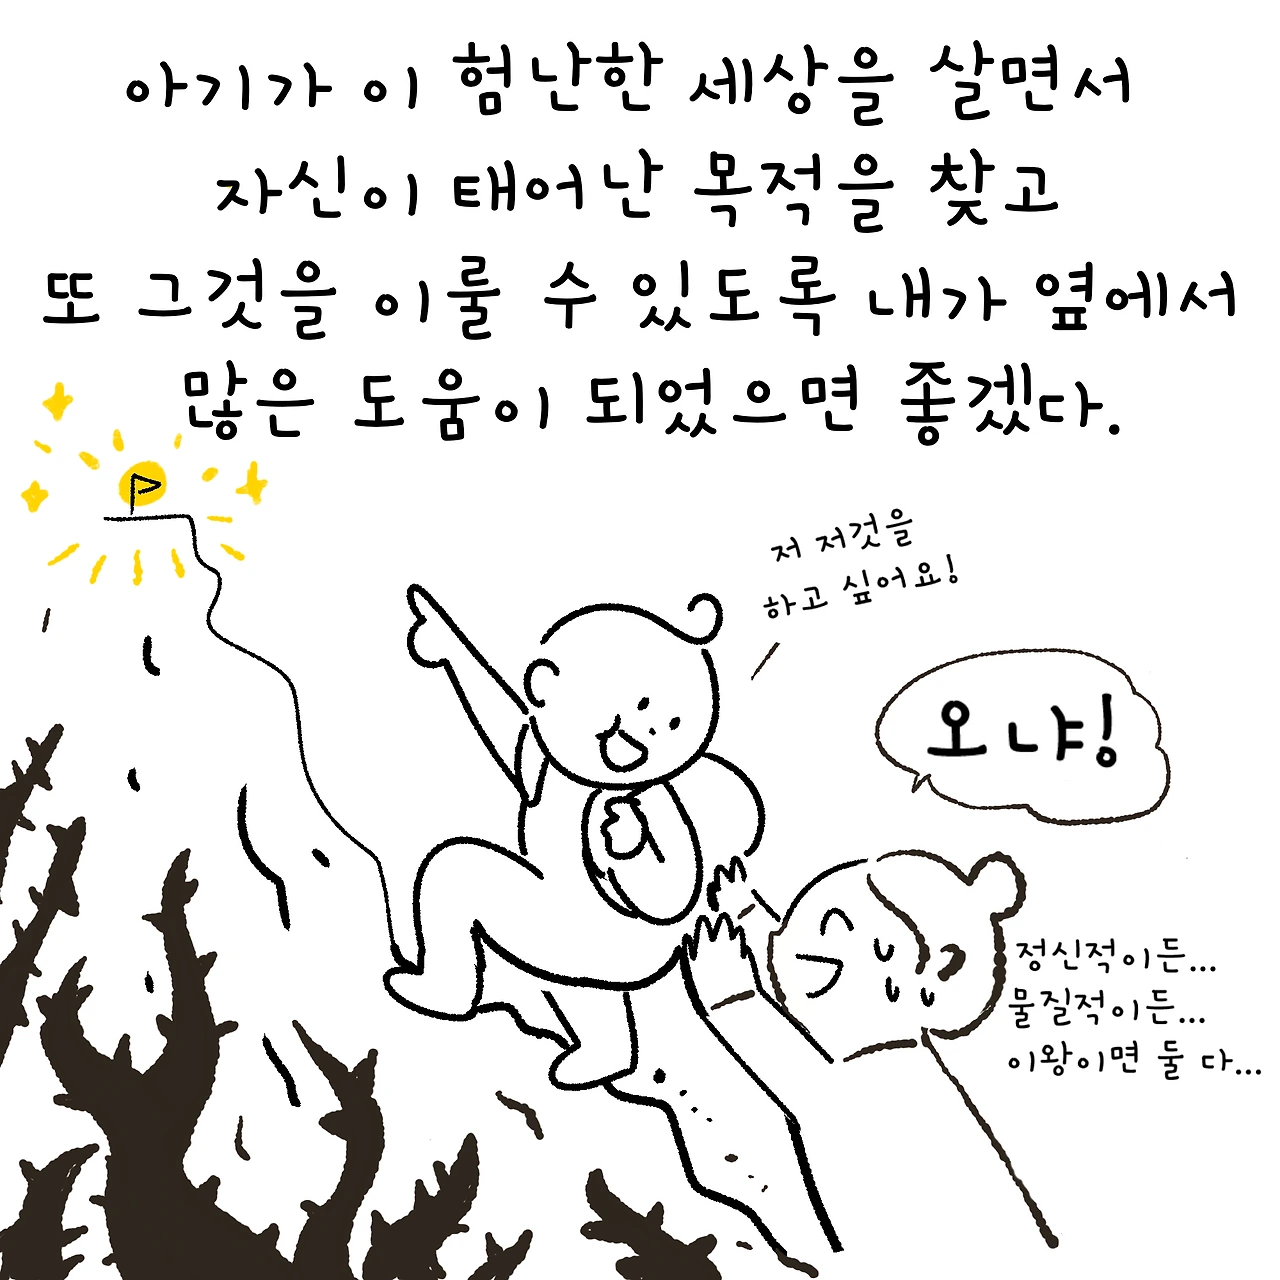 아기가 이 험난한 세상을 살면서
자신이 태어난 목적을 찾고
또 그것을 이룰 수 있도록 내가 옆에서
많은 도움이 되었으면 좋겠다.
저 저것을
하고 싶어요!
오냐!
정신적이든...
물질적이든...
이왕이면 둘 다...